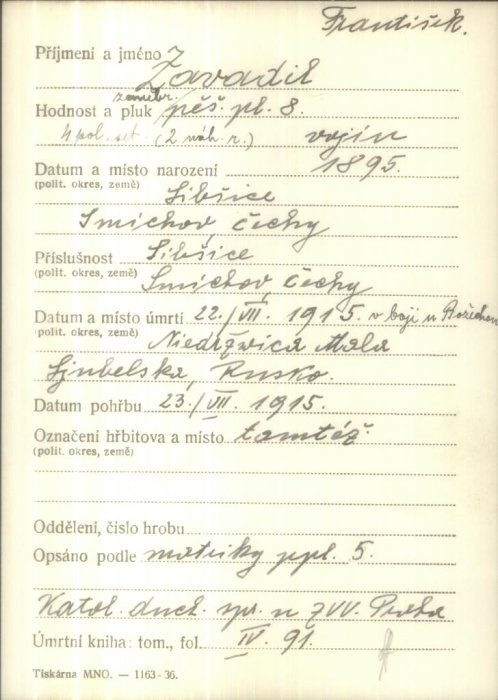 František.
Příjmení a jméno Zavadil
zeměbr.
Hodnost a pluk pěš. pl. 8.
4 pol. set. (2 náh. r.) vojín
Datum a místo narození 1895.
(polit. okres, země) Libšice
Smichov, Čechy
Příslušnost Libšice
(polit. okres, země) Smichov, Čechy
Datum a místo úmrtí 22./VII. 1915. v boji u
(polit. okres, země) Niedrzwica Mala
Ljubelska, Rusko.
Datum pohřbu 23./VII. 1915.
Označení hřbitova a místo tamtéž
(polit. okres, země)
Oddělení, číslo hrobu
Opsáno podle matriky ppl. 5.
Katol. duch. spr. u ZVV. Praha
Úmrtní kniha: tom., fol. IV. 91.
Tiskárna MNO. — 1163-36.